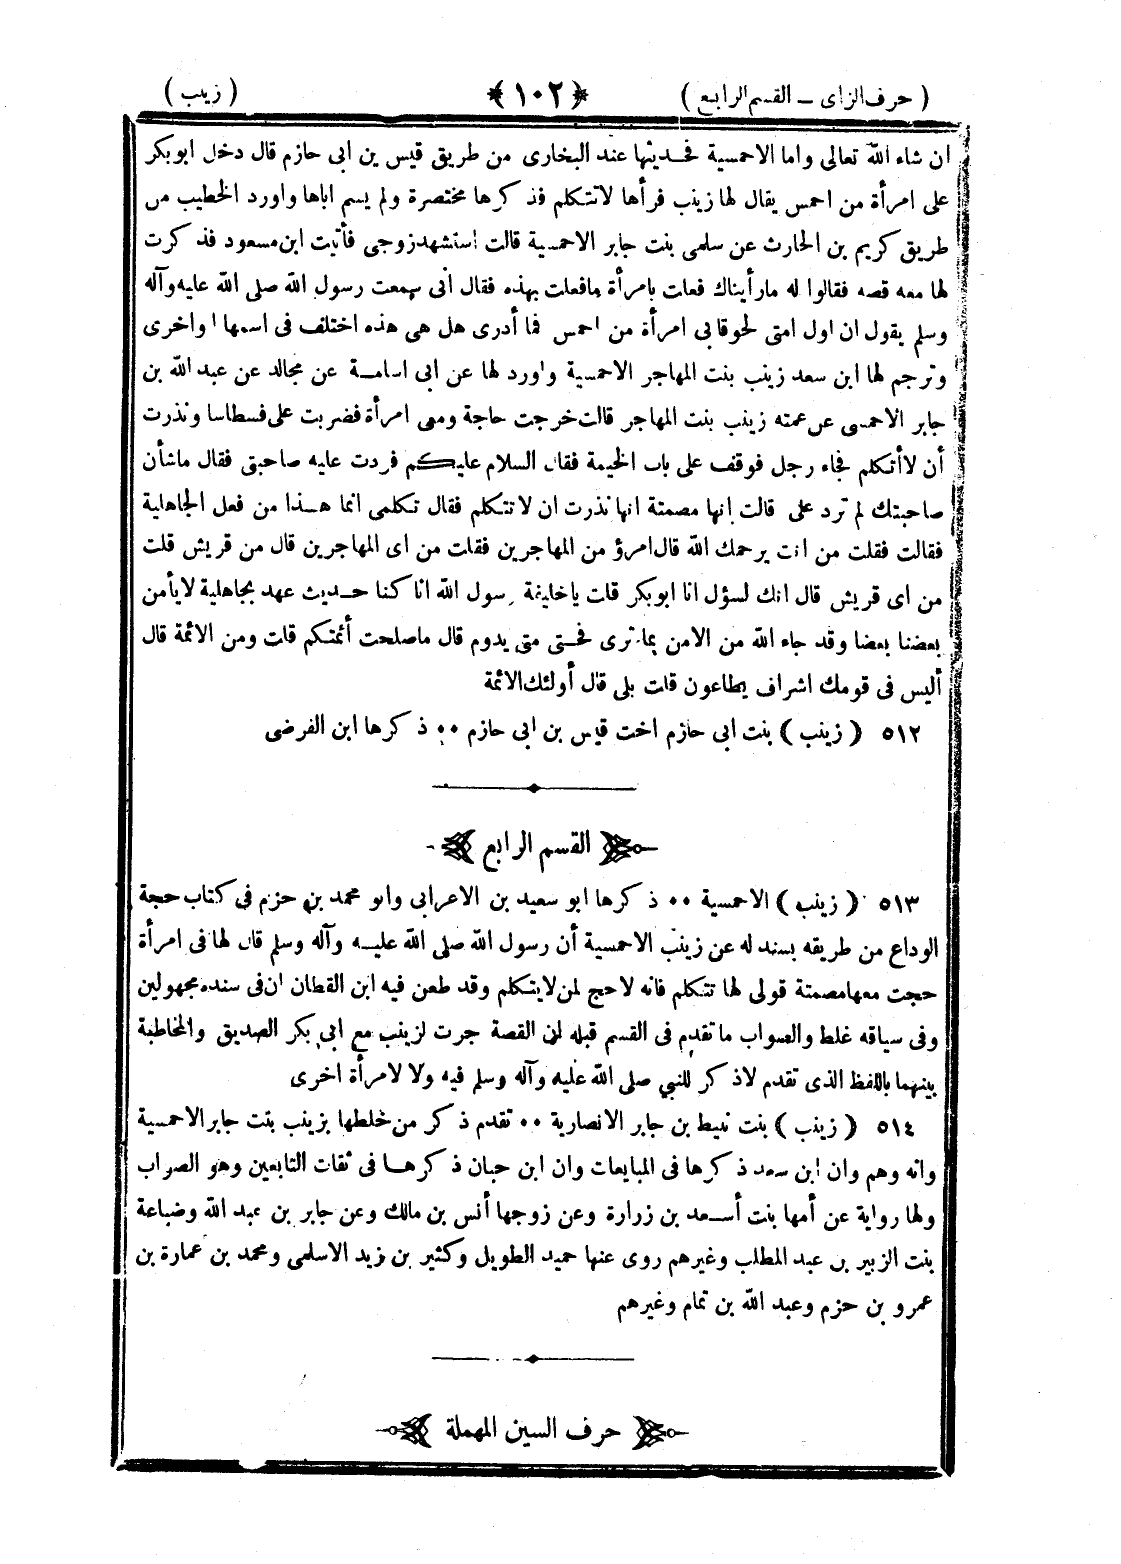 ( حرف الزاى – القسم الرابع ) ﴿ ١٠٢ ﴾ ( زينب )
ان شاء الله تعالى واما الاحمسية فحديثها عند البخارى من طريق قيس بن ابى حازم قال دخل ابوبكر
على امرأة من احمس يقال لها زينب فرأها لاتتكلم فذكرها مختصرة ولم يسم اباها واورد الخطيب من
طريق كريم بن الحارث عن سلمى بنت جابر الاحمسية قالت استشهد زوجى فأتيت ابن مسعود فذكرت
لها معه قصه فقالوا له مارأيناك فعلت بامرأة مافعلت بهذه فقال انى سمعت رسول الله صلى الله عليه وآله
وسلم يقول ان اول امتى لحوقا بى امرأة من احمس فما أدرى هل هى هذه اختلف فى اسمها او اخرى
وترجم لها ابن سعد زينب بنت المهاجر الاحمسية واورد لها عن ابى اسامة عن مجالد عن عبد الله بن
جابر الاحمسى عن عمته زينب بنت المهاجر قالت خرجت حاجة ومعى امرأة فضربت على فسطاسا ونذرت
أن لاأتكلم فجاء رجل فوقف على باب الخيمة فقال السلام عليكم فردت عليه صاحبتى فقال ماشأن
صاحبتك لم ترد على قالت انها مصمتة انها نذرت ان لاتتكلم فقال تكلمى انما هذا من فعل الجاهلية
فقالت فقلت من انت يرحمك الله قال امرؤ من المهاجرين فقلت من اى المهاجرين قال من قريش قلت
من اى قريش قال انك لسؤل انا ابوبكر قلت ياخليفة رسول الله انا كنا حديث عهد بجاهلية لايأمن
بعضنا بعضا وقد جاء الله من الامن بما ترى فحتى متى يدوم قال ماصلحت أئمتكم قلت ومن الائمة قال
أليس فى قومك اشراف يطاعون قلت بلى قال أولئك الائمة
٥١٢ ( زينب ) بنت ابى حازم اخت قيس بن ابى حازم ٠٠ ذكرها ابن الفرضى
القسم الرابع
٥١٣ ( زينب ) الاحمسية ٠٠ ذكرها ابو سعيد بن الاعرابى وابو محمد بن حزم فى كتاب حجة
الوداع من طريقه بسند له عن زينب الاحمسية أن رسول الله صلى الله عليه وآله وسلم قال لها فى امرأة
حجت معها مصمتة قولى لها تتكلم فانه لاحج لمن لايتكلم وقد طعن فيه ابن القطان ان فى سنده مجهولين
وفى سياقه غلط والصواب ماتقدم فى القسم قبله ان القصة جرت لزينب مع ابى بكر الصديق والمخاطبة
بينهما باللفظ الذى تقدم لاذكر للنبي صلى الله عليه وآله وسلم فيه ولا لامرأة اخرى
٥١٤ ( زينب ) بنت نبيط بن جابر الانصارية ٠٠ تقدم ذكر من خلطها بزينب بنت جابر الاحمسية
وانه وهم وان ابن سعد ذكرها فى المبايعات وان ابن حبان ذكرها فى ثقات التابعين وهو الصواب
ولها رواية عن أمها بنت أسعد بن زرارة وعن زوجها أنس بن مالك وعن جابر بن عبد الله وضباعة
بنت الزبير بن عبد المطلب وغيرهم روى عنها حميد الطويل وكثير بن زيد الاسلمى ومحمد بن عمارة بن
عمرو بن حزم وعبد الله بن تمام وغيرهم
حرف السين المهملة